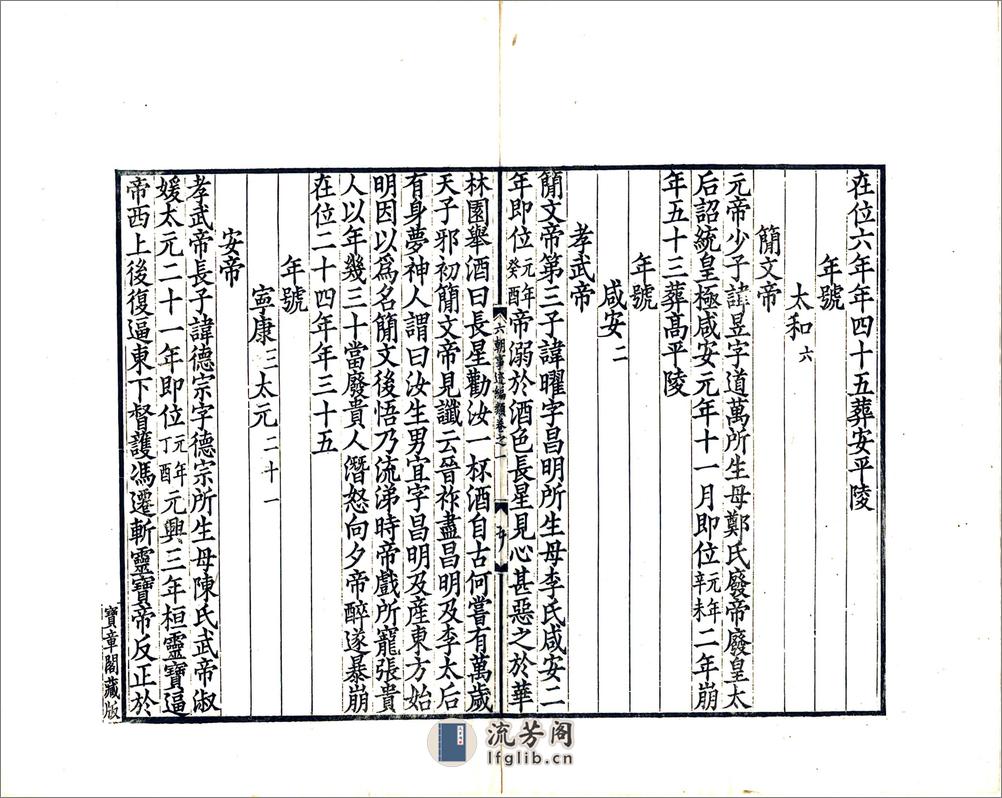 在位六年年四十五葬安平陵
年號
太和六
簡文帝
元帝少子諱昱字道萬所生母鄭氏廢帝廢皇太
后詔統皇極咸安元年十一月即位元年辛未二年崩
年五十三葬高平陵
年號
咸安二
孝武帝
簡文帝第三子諱曜字昌明所生母李氏咸安二
年即位元年癸酉帝溺於酒色長星見心甚惡之於華
六朝事迹編類卷之一
林園舉酒曰長星勸汝一杯酒自古何嘗有萬歲
天子邪初簡文帝見讖云晉祚盡昌明及李太后
有身夢神人謂曰汝生男宜字昌明及産東方始
明因以爲名簡文後悟乃流涕時帝戲所寵張貴
人以年幾三十當廢貴人潛怒向夕帝醉遂暴崩
在位二十四年年三十五
年號
寧康三太元二十一
安帝
孝武帝長子諱德宗字德宗所生母陳氏武帝淑
媛太元二十一年即位元年丁酉元興三年桓靈寶逼
帝西上後復逼東下督護馮遷斬靈寶帝反正於
寶章閣藏版
流芳阁
lfglib.cn